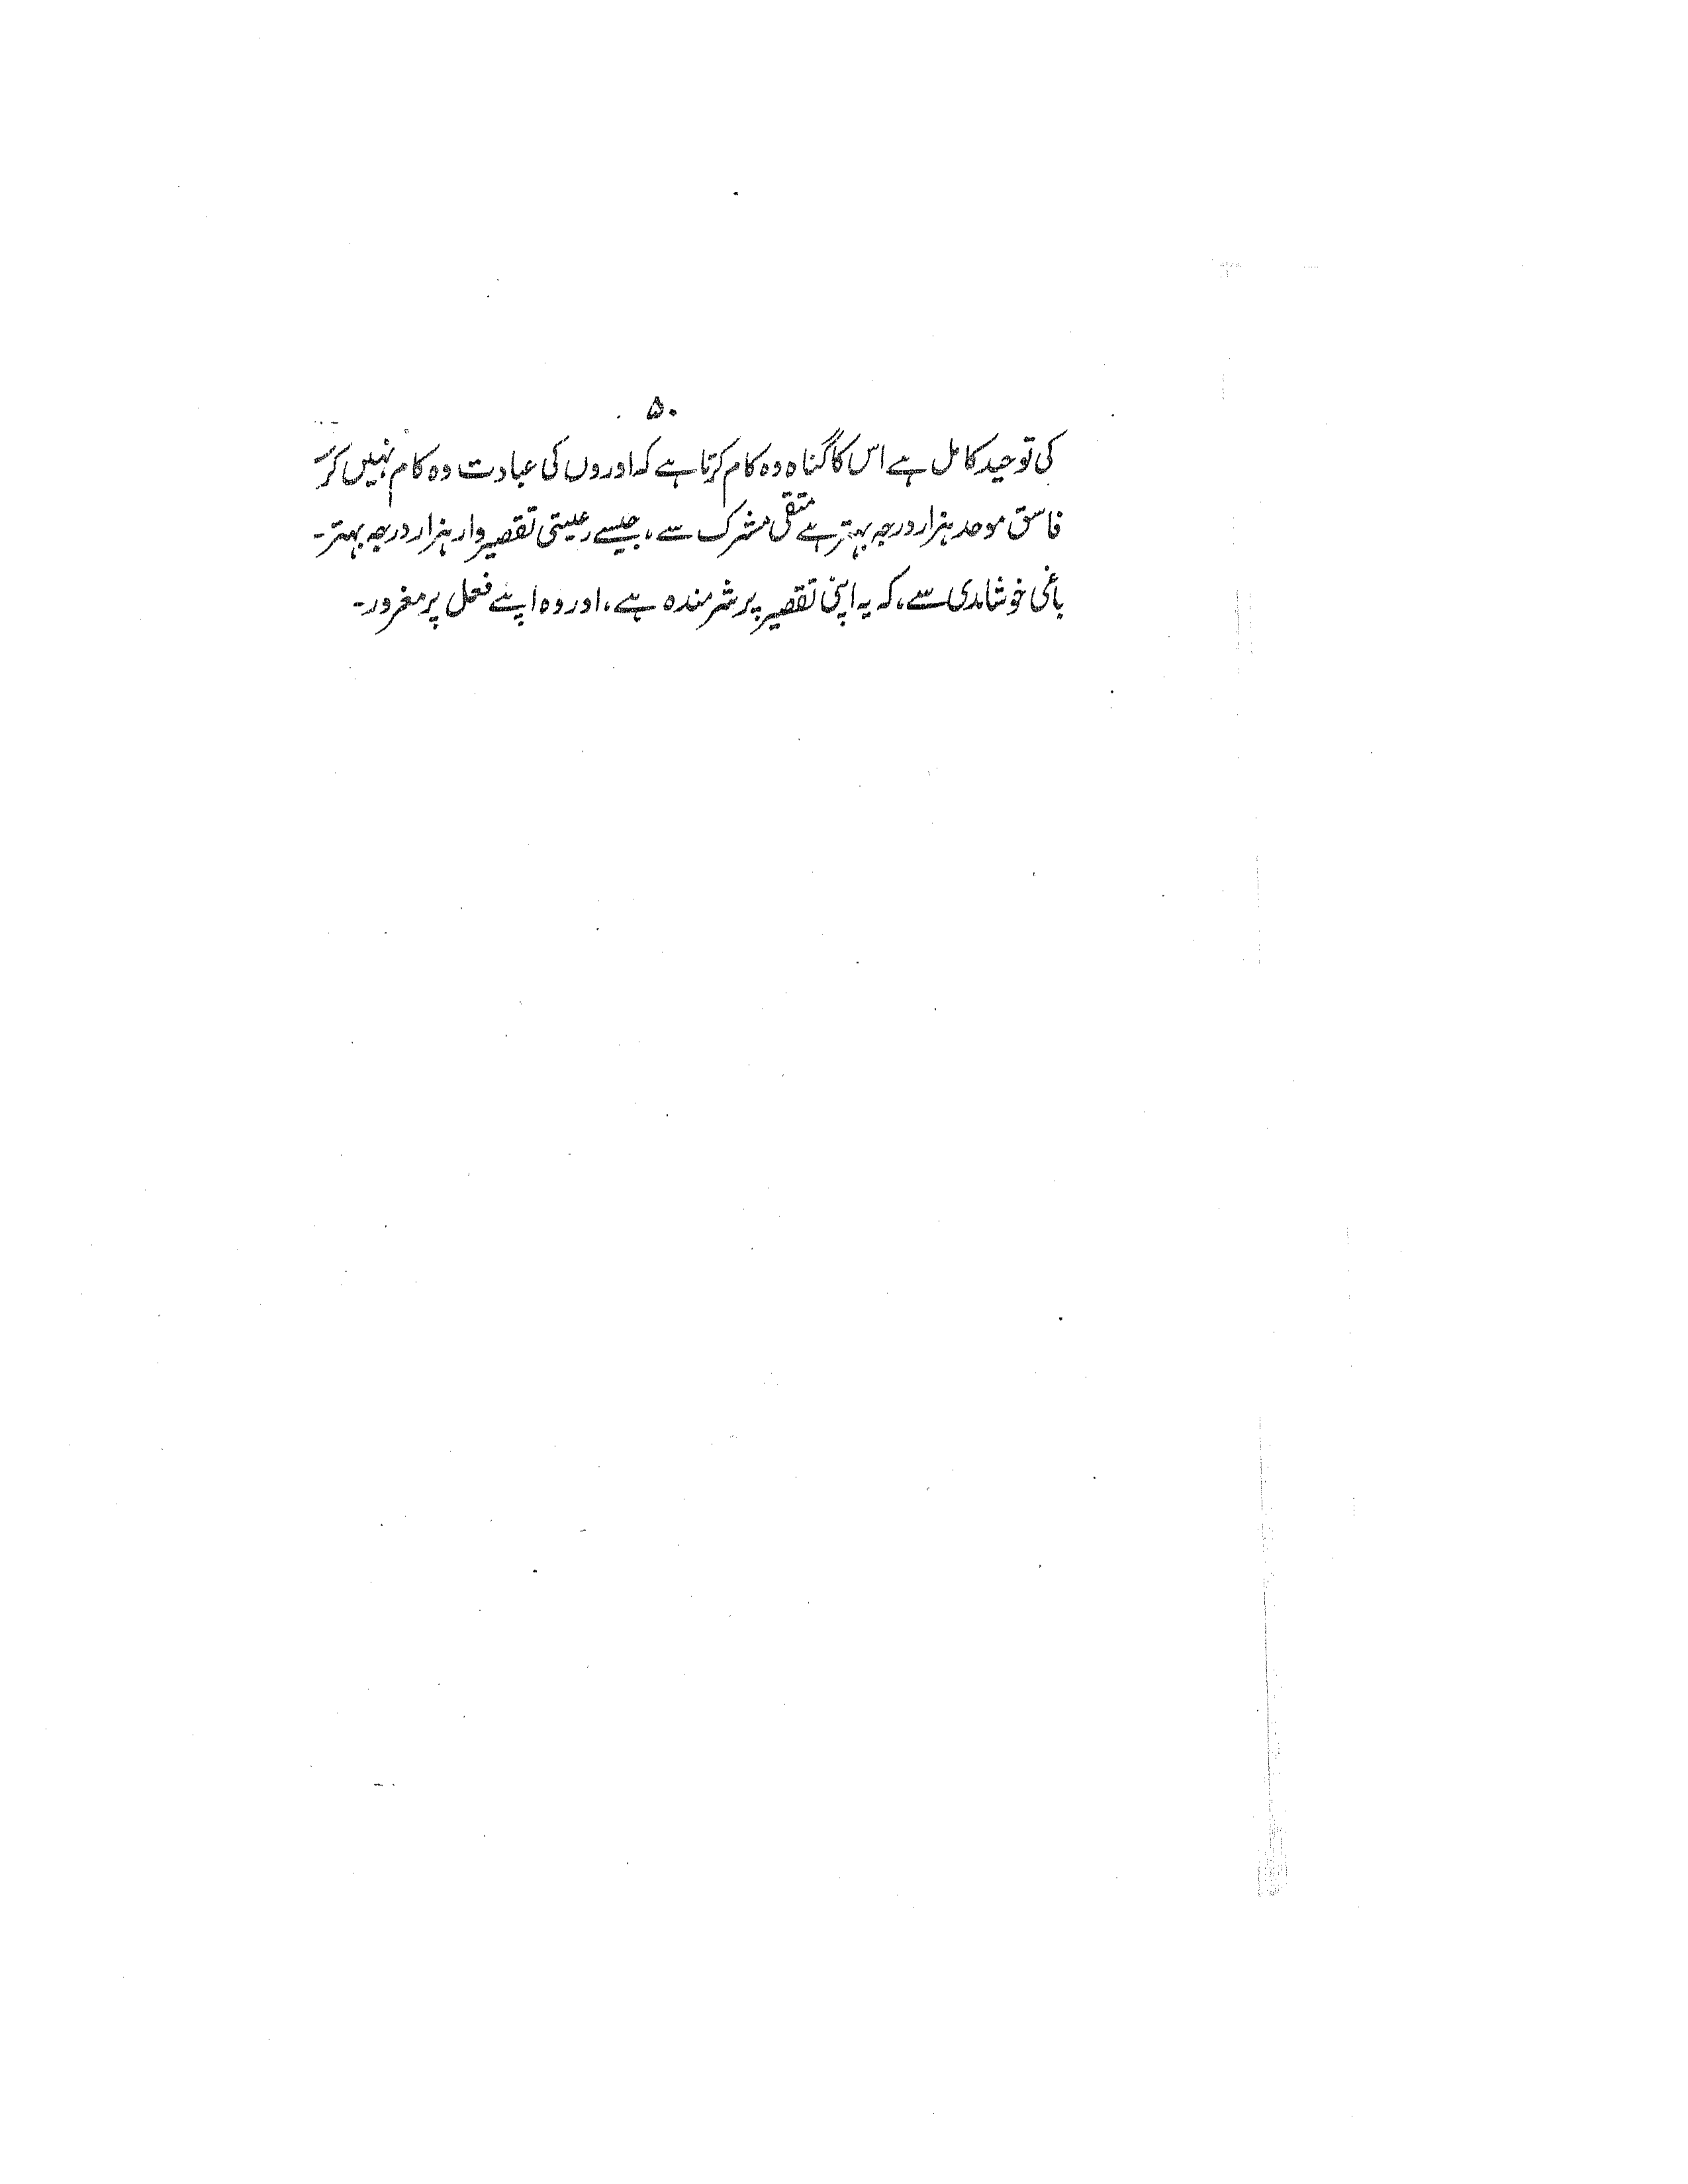 ۵۰
کی توحید کامل ہے اس کا گناہ وہ کام کرتا ہے کہ اوروں کی عبادت وہ کام نہیں کر
فاسق موحد ہزار درجہ بہتر ہے متقی مشرک سے، جیسے رعیتی تقصیروار ہزار درجہ بہتر۔
باغی خوشامدی سے، کہ یہ اپنی تقصیر پر شرمندہ ہے، اور وہ اپنے فعل پر مغرور۔